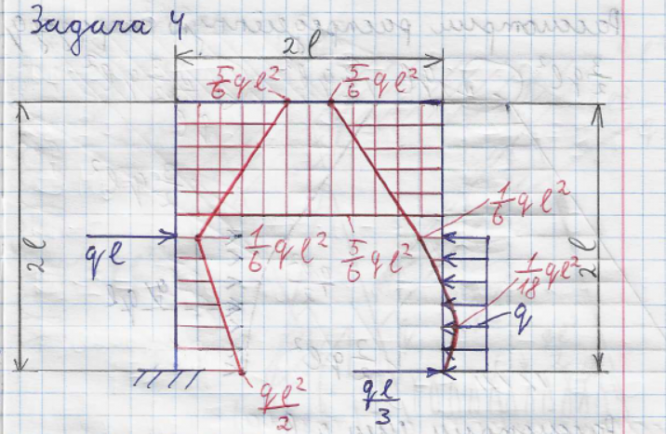 Задача 4
2l
5/6 ql² 5/6 ql²
1/6 ql²
2l
ql
1/6 ql²
5/6 ql²
1/18 ql²
2l
q
ql²/2
ql/3